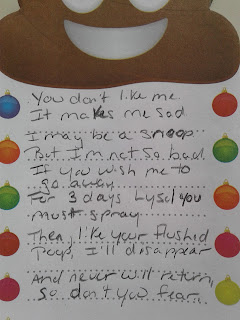 You don't like me.
It makes me sad
I may be a snoop
But I'm not so bad.
If you wish me to
go away
For 3 days Lysol you
must spray
Then, like your flushed
Poop, I'll disappear
And never will return,
so don't you fear.